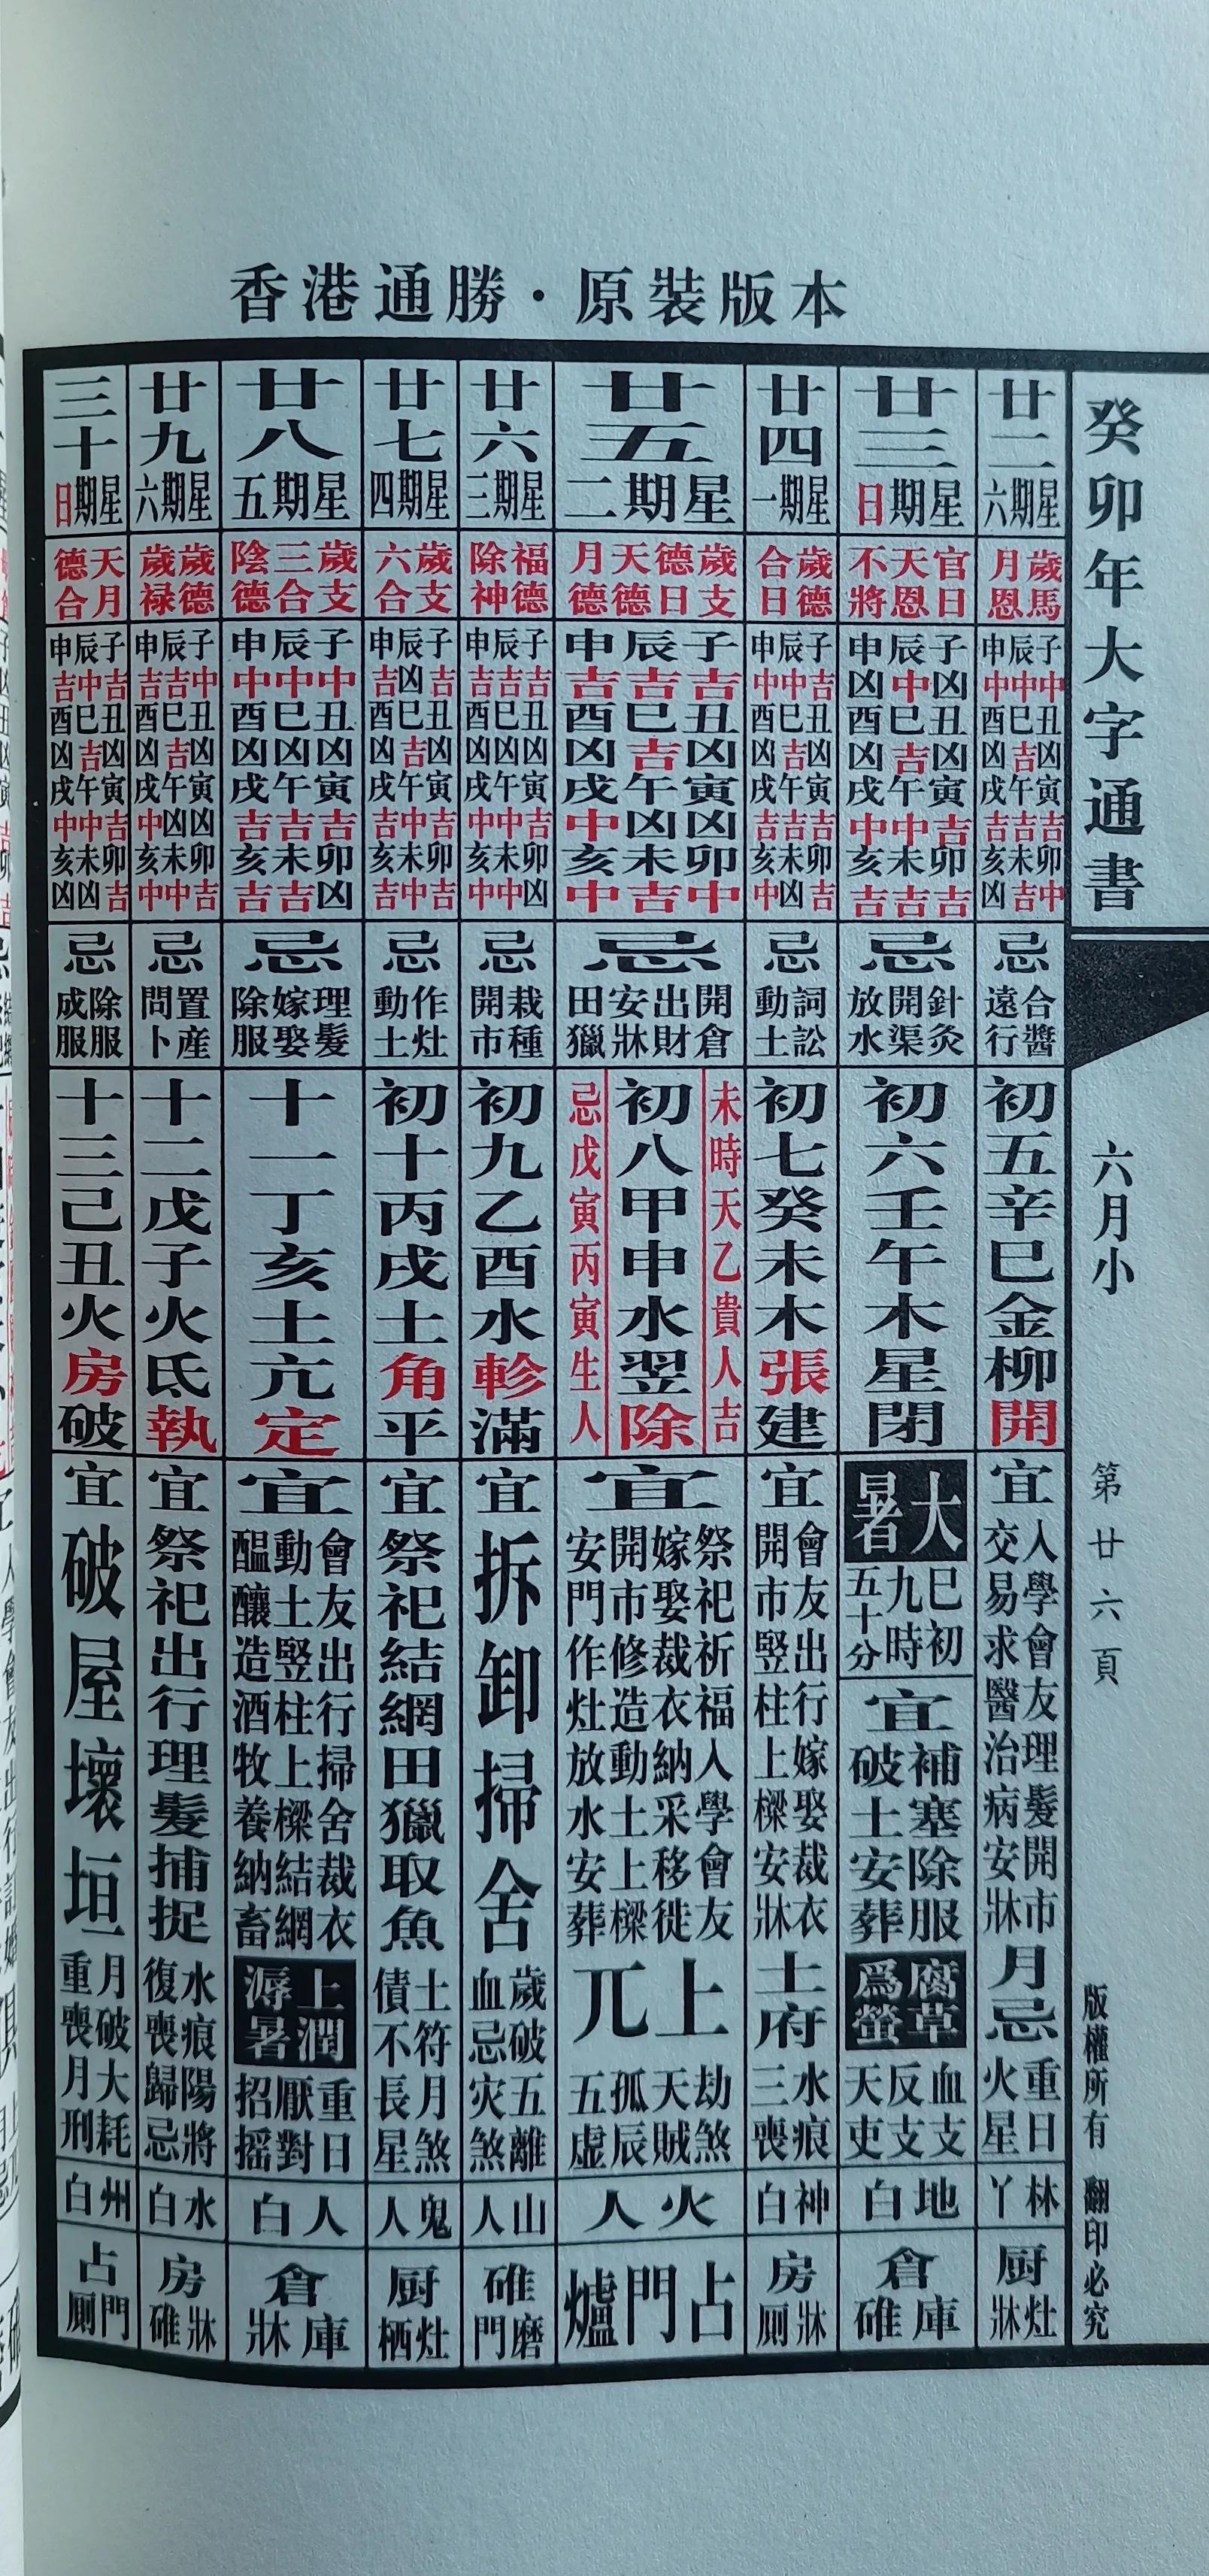 香港通勝·原裝版本
癸卯年大字通書
六月小
第廿六頁
版權所有 翻印必究
廿二
星期六
歲馬
月恩
子中丑凶寅吉卯中
辰中巳吉午吉未吉
申中酉凶戌吉亥凶
忌
合醬
遠行
初五辛巳金柳開
宜
入學會友理髮開市
交易求醫治病安牀
月忌
重日
火星
林
丫
厨
灶
牀
廿三
星期日
官日
天恩
不將
子凶丑凶寅吉卯吉
辰中巳吉午中未吉
申凶酉凶戌中亥吉
忌
針灸
開渠
放水
初六壬午木星閉
大暑
巳初
九時
五十分
宜
補塞除服
破土安葬
腐草
爲螢
血支
反支
天吏
地
白
倉
庫
碓
廿四
星期一
歲德
合日
子吉丑凶寅吉卯吉
辰中巳吉午吉未凶
申中酉凶戌吉亥中
忌
詞訟
動土
初七癸未木張建
宜
會友出行嫁娶裁衣
開市竪柱上樑安牀
土府
水痕
三喪
神
白
房
牀
厕
廿五
星期二
歲支
德日
天德
月德
子吉丑凶寅凶卯中
辰吉巳吉午凶未吉
申吉酉凶戌中亥中
忌
開倉
出財
安牀
田獵
未時天乙貴人吉
初八甲申水翌除
忌戊寅丙寅生人
宜
祭祀祈福入學會友
嫁娶裁衣納采移徙
開市修造動土上樑
安門作灶放水安葬
上兀
劫煞
天賊
孤辰
五虛
火人
占門爐
廿六
星期三
福德
除神
子吉丑凶寅吉卯凶
辰吉巳凶午中未中
申吉酉凶戌中亥中
忌
栽種
開市
初九乙酉水軫滿
宜
拆卸掃舍
歲破五離
血忌灾煞
山
人
碓
磨
門
廿七
星期四
歲支
六合
子吉丑凶寅吉卯吉
辰凶巳吉午中未中
申吉酉凶戌吉亥吉
忌
作灶
動土
初十丙戌土角平
宜
祭祀結網田獵取魚
土符月煞
債不長星
鬼
人
厨
灶
栖
廿八
星期五
歲支
三合
陰德
子中丑凶寅吉卯凶
辰中巳凶午吉未吉
申中酉凶戌吉亥吉
忌
理髮
嫁娶
除服
十一丁亥土亢定
宜
會友出行掃舍裁衣
動土竪柱上樑結網
醞釀造酒牧養納畜
上潤
溽暑
重日
厭對
招摇
人
白
倉
庫
牀
廿九
星期六
歲德
歲禄
子中丑凶寅凶卯吉
辰吉巳吉午凶未中
申吉酉凶戌中亥中
忌
置産
問卜
十二戊子火氐執
宜
祭祀出行理髮捕捉
水痕陽將
復喪歸忌
水
白
房
牀
碓
三十
星期日
天月
德合
子吉丑凶寅吉卯吉
辰中巳吉午中未凶
申吉酉凶戌中亥凶
忌
除服
成服
十三己丑火房破
宜
破屋壞垣
月破大耗
重喪月刑
州
白
占
門
厕